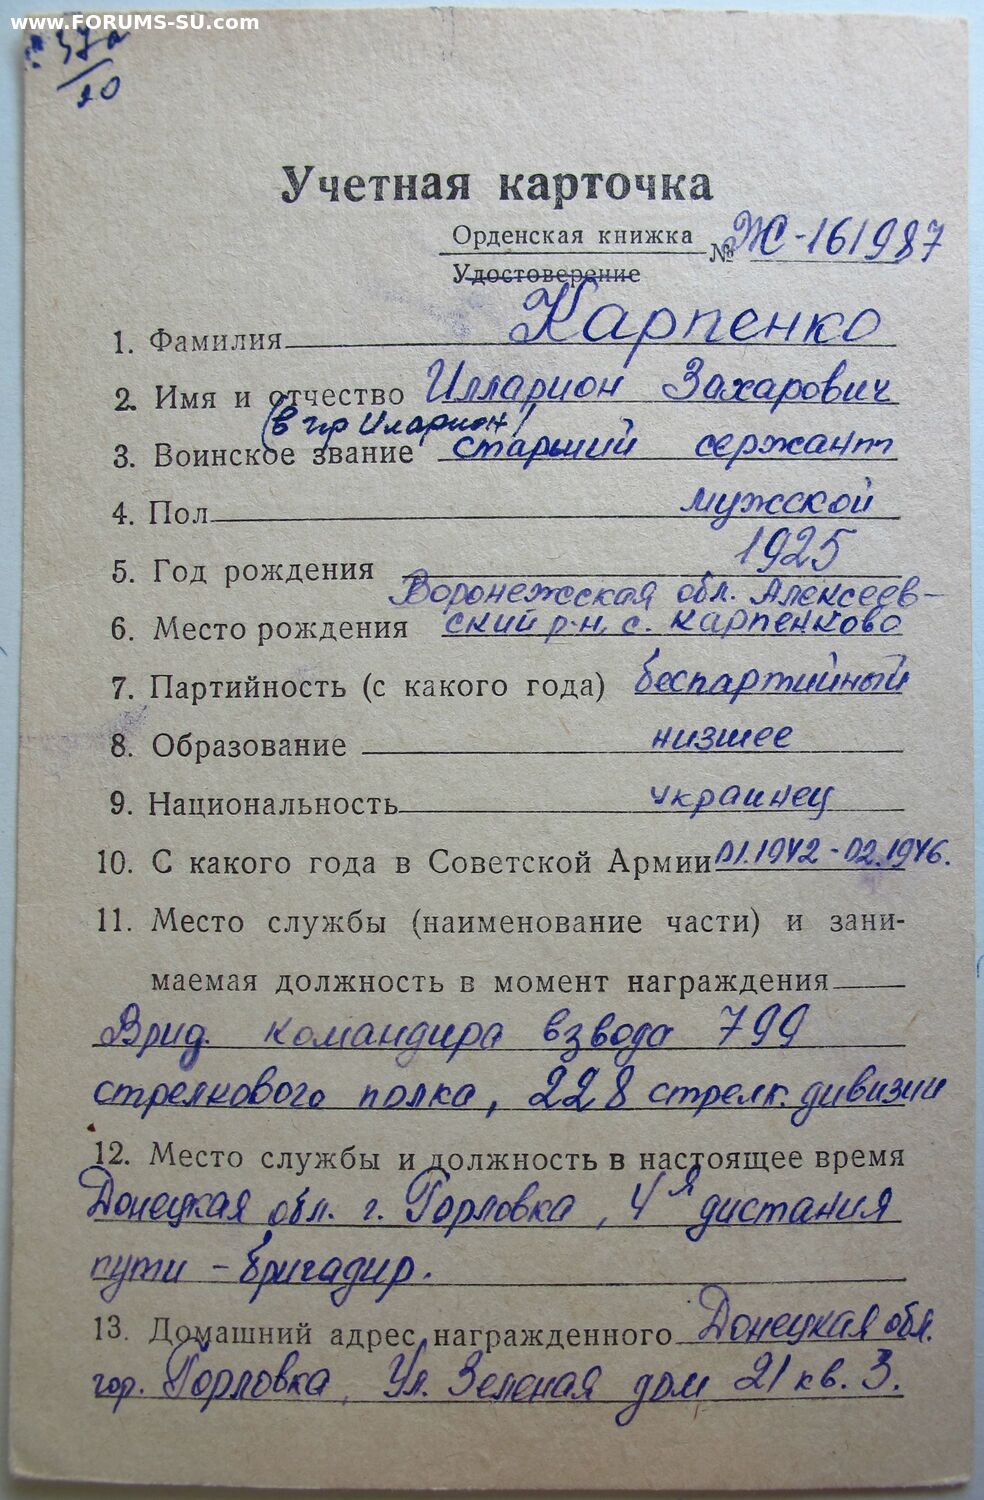 www.FORUMS-SU.com
57а
20
Учетная карточка
Орденская книжка № Ж-161987
Удостоверение
1. Фамилия Карпенко
2. Имя и отчество Илларион Захарович
(в гр Иларион)
3. Воинское звание старший сержант
4. Пол мужской
5. Год рождения 1925
Воронежская обл. Алексеев-
6. Место рождения ский р-н, с. Карпенково
7. Партийность (с какого года) беспартийный
8. Образование низшее
9. Национальность украинец
10. С какого года в Советской Армии 01.1942 - 02.1946.
11. Место службы (наименование части) и зани-
маемая должность в момент награждения
Врид. командира взвода 799
стрелкового полка, 228 стрелк. дивизии
12. Место службы и должность в настоящее время
Донецкая обл. г. Горловка, 4я дистания
пути - бригадир.
13. Домашний адрес награжденного Донецкая обл.
гор. Горловка, Ул. Зеленая дом 21 кв. 3.